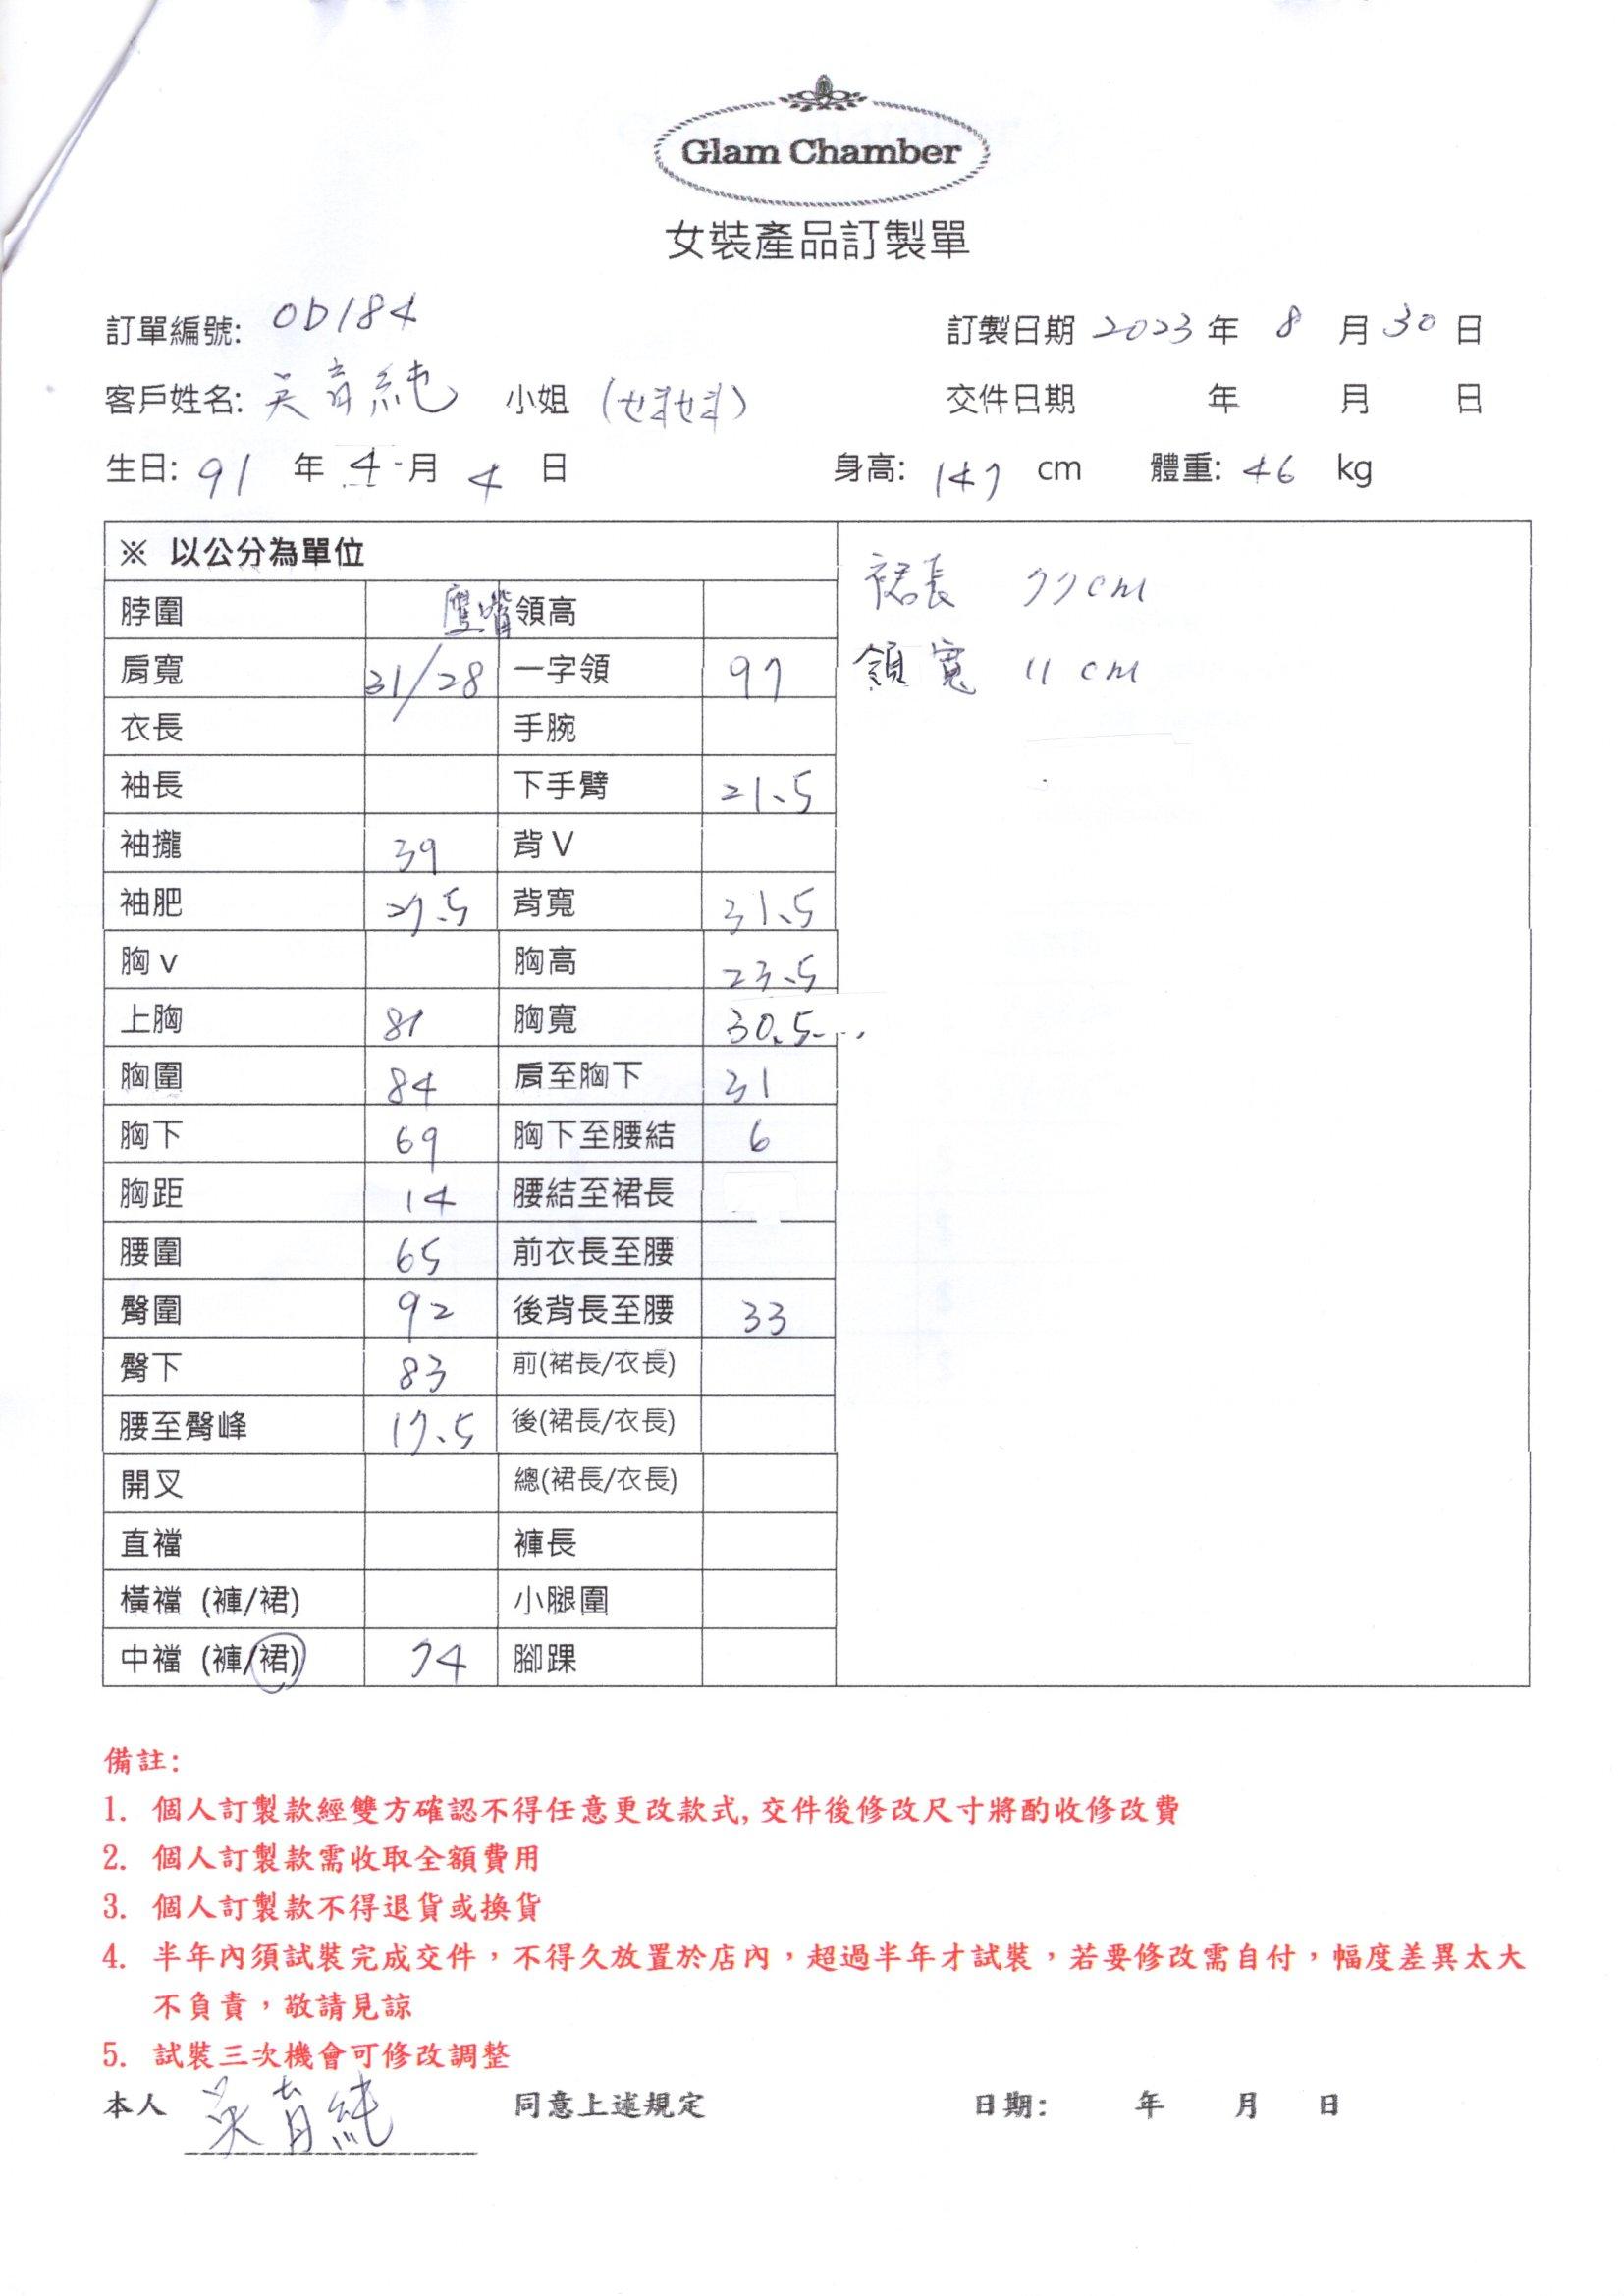 Glam Chamber
女裝產品訂製單
訂單編號: OD184 訂製日期 2023 年 8 月 30 日
客戶姓名: 吳音純 小姐 交件日期 年 月 日
生日: 91 年 4 月 4 日 身高: 147 cm 體重: 46 kg
※ 以公分為單位
裙長 77cm
領寬 11cm
脖圍 鷹嘴 領高
肩寬 31/28 一字領 97
衣長 手腕
袖長 下手臂 21.5
袖攏 39 背V
袖肥 27.5 背寬 31.5
胸v 胸高 23.5
上胸 81 胸寬 30.5
胸圍 84 肩至胸下 31
胸下 69 胸下至腰結 6
胸距 14 腰結至裙長
腰圍 65 前衣長至腰
臀圍 92 後背長至腰 33
臀下 83 前(裙長/衣長)
腰至臀峰 17.5 後(裙長/衣長)
開叉 總(裙長/衣長)
直襠 褲長
橫襠 (褲/裙) 小腿圍
中襠 (褲/裙) 74 腳踝
備註:
1. 個人訂製款經雙方確認不得任意更改款式,交件後修改尺寸將酌收修改費
2. 個人訂製款需收取全額費用
3. 個人訂製款不得退貨或換貨
4. 半年內須試裝完成交件，不得久放置於店內，超過半年才試裝，若要修改需自付，幅度差異太大
不負責，敬請見諒
5. 試裝三次機會可修改調整
本人 吳音純 同意上述規定 日期: 年 月 日